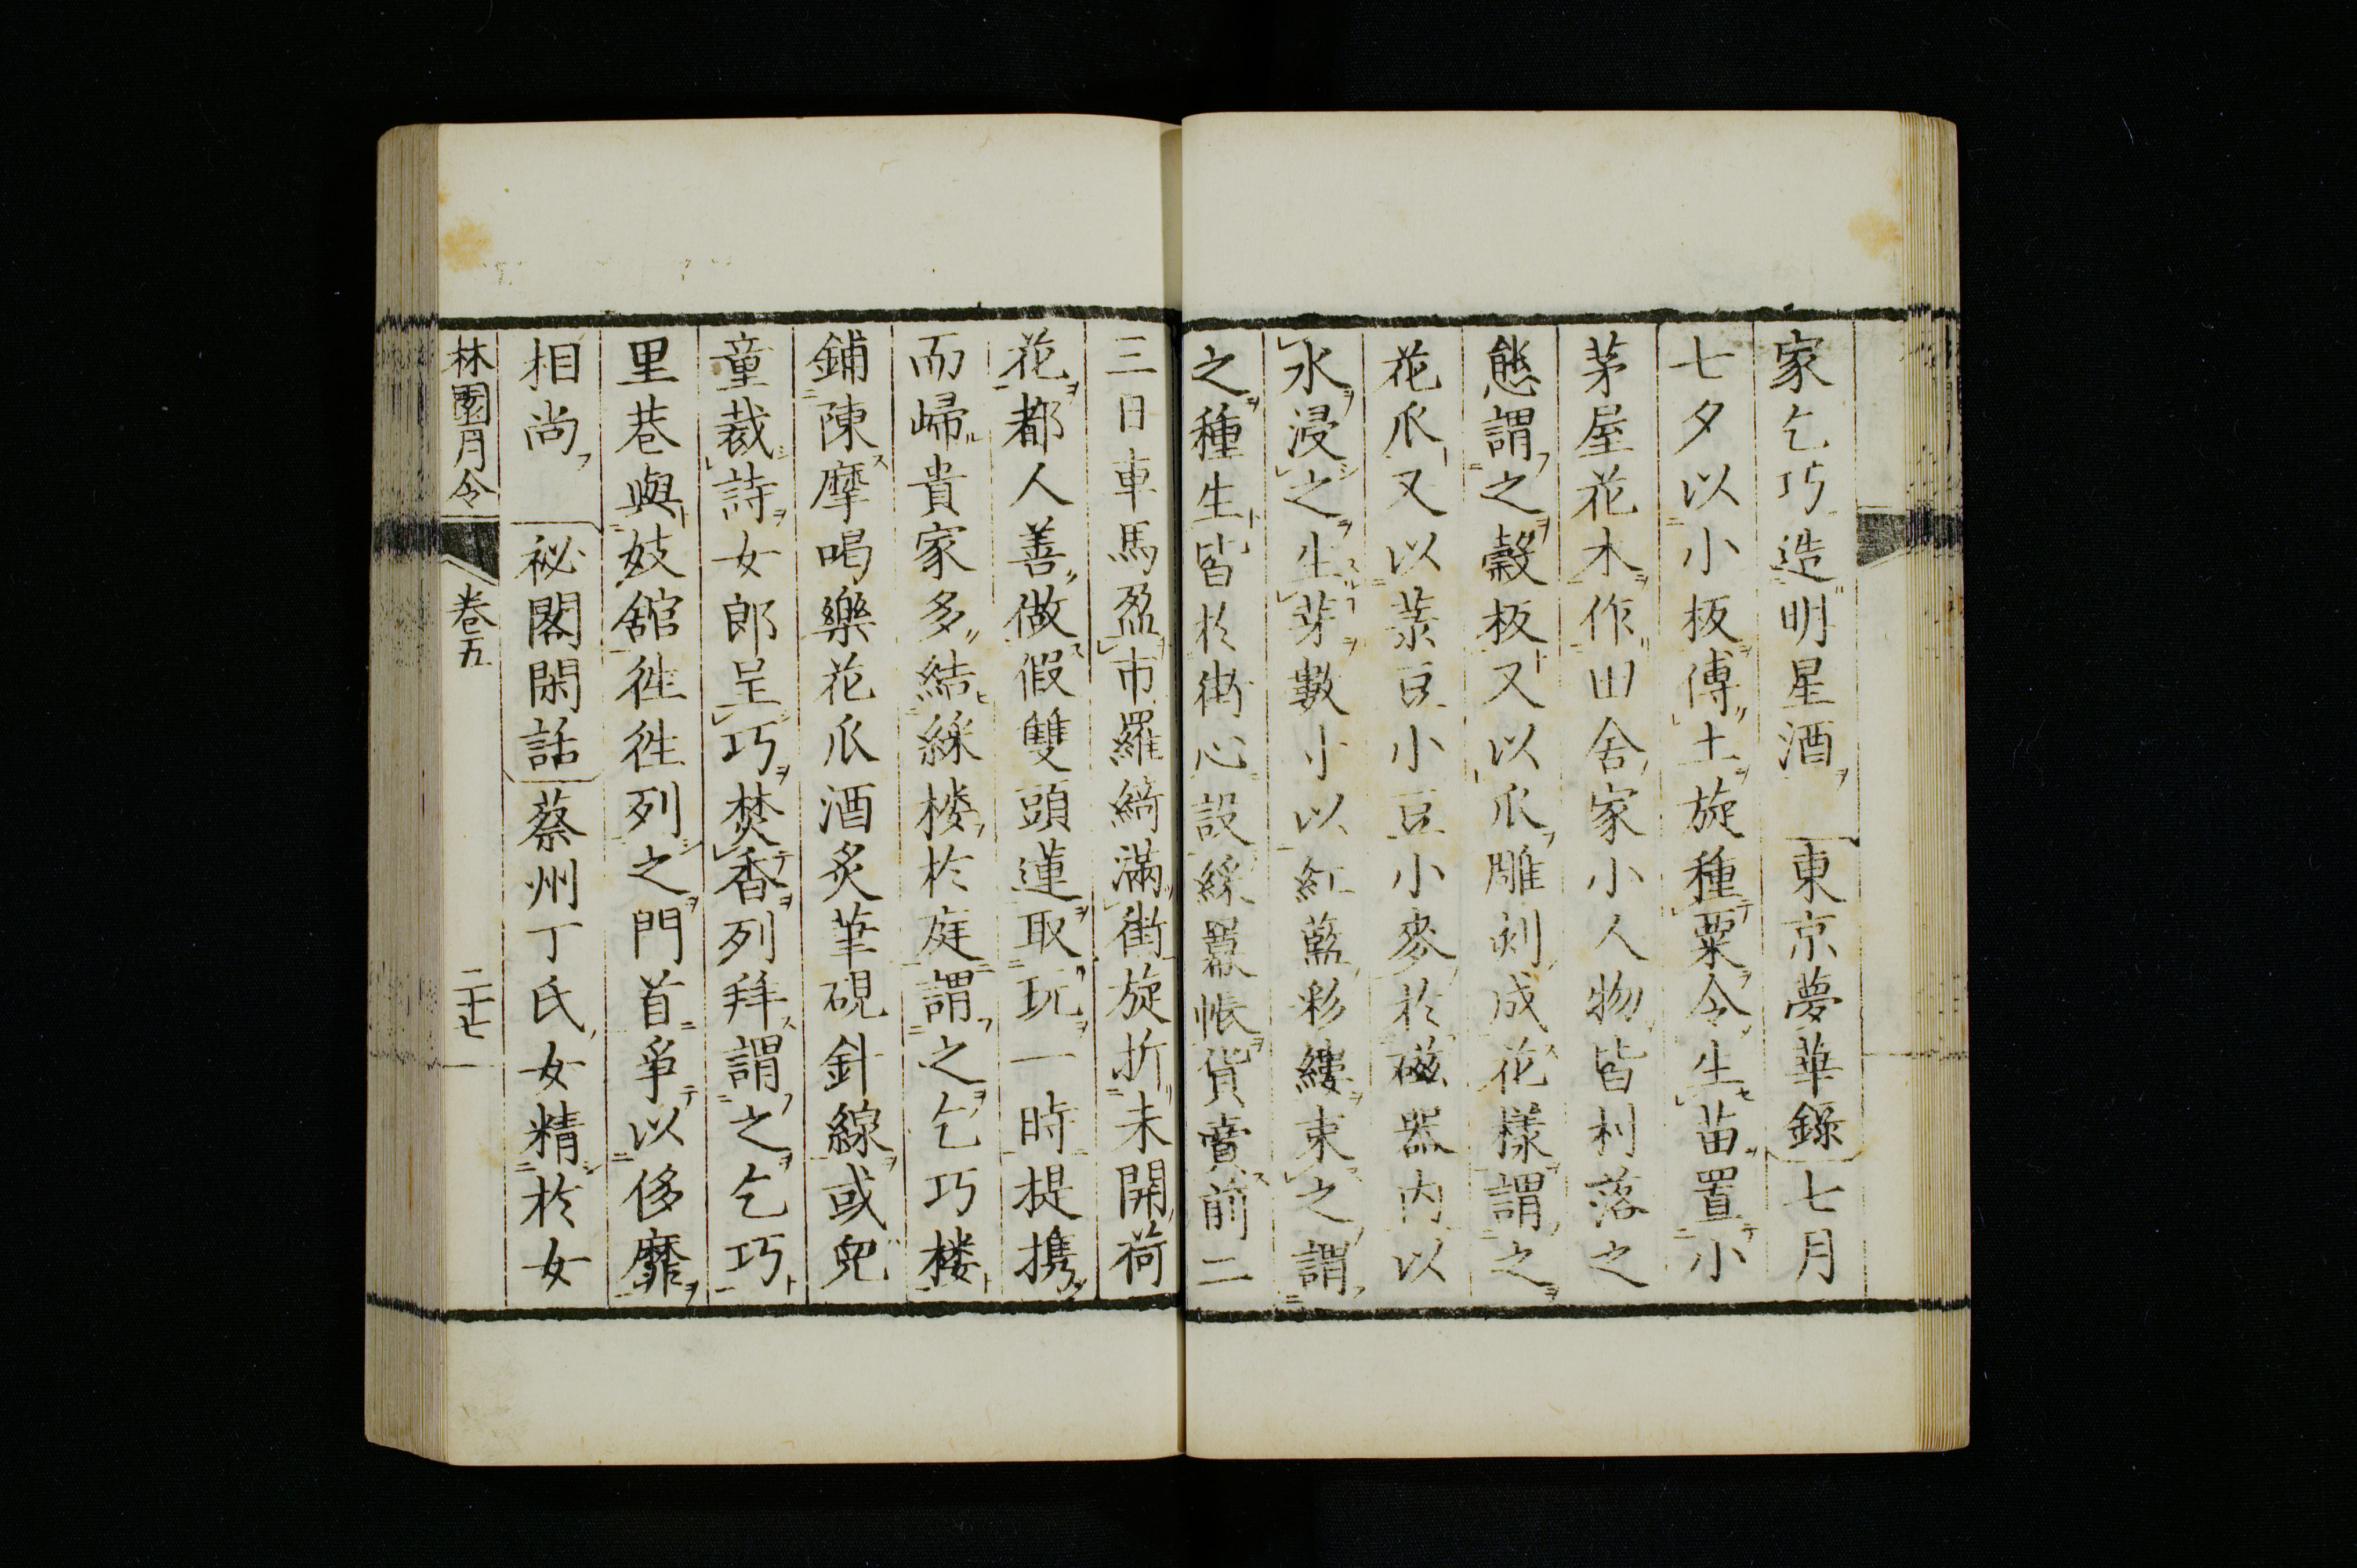 家乞巧造明星酒 東京夢華錄七月
七夕以小板傅土旋種粟令生苗置小
茅屋花木作田舍家小人物皆村落之
態謂之穀板又以瓜雕刻成花樣謂之
花瓜又以菉豆小豆小麥於磁器内以
水浸之生芽數寸以紅藍彩縷束之謂
之種生皆於街心設綵幕帳貨賣前二
三日車馬盈市羅綺滿街旋折未開荷
花都人善做假雙頭蓮取玩一時提携
而歸貴家多結綵楼於庭謂之乞巧楼
鋪陳摩喝樂花瓜酒炙筆硯針線或兒
童裁詩女郎呈巧焚香列拜謂之乞巧
里巷與妓舘徃徃列之門首爭以侈靡
相尚 祕閣閑話蔡州丁氏女精於女
林園月令 卷五 二十七